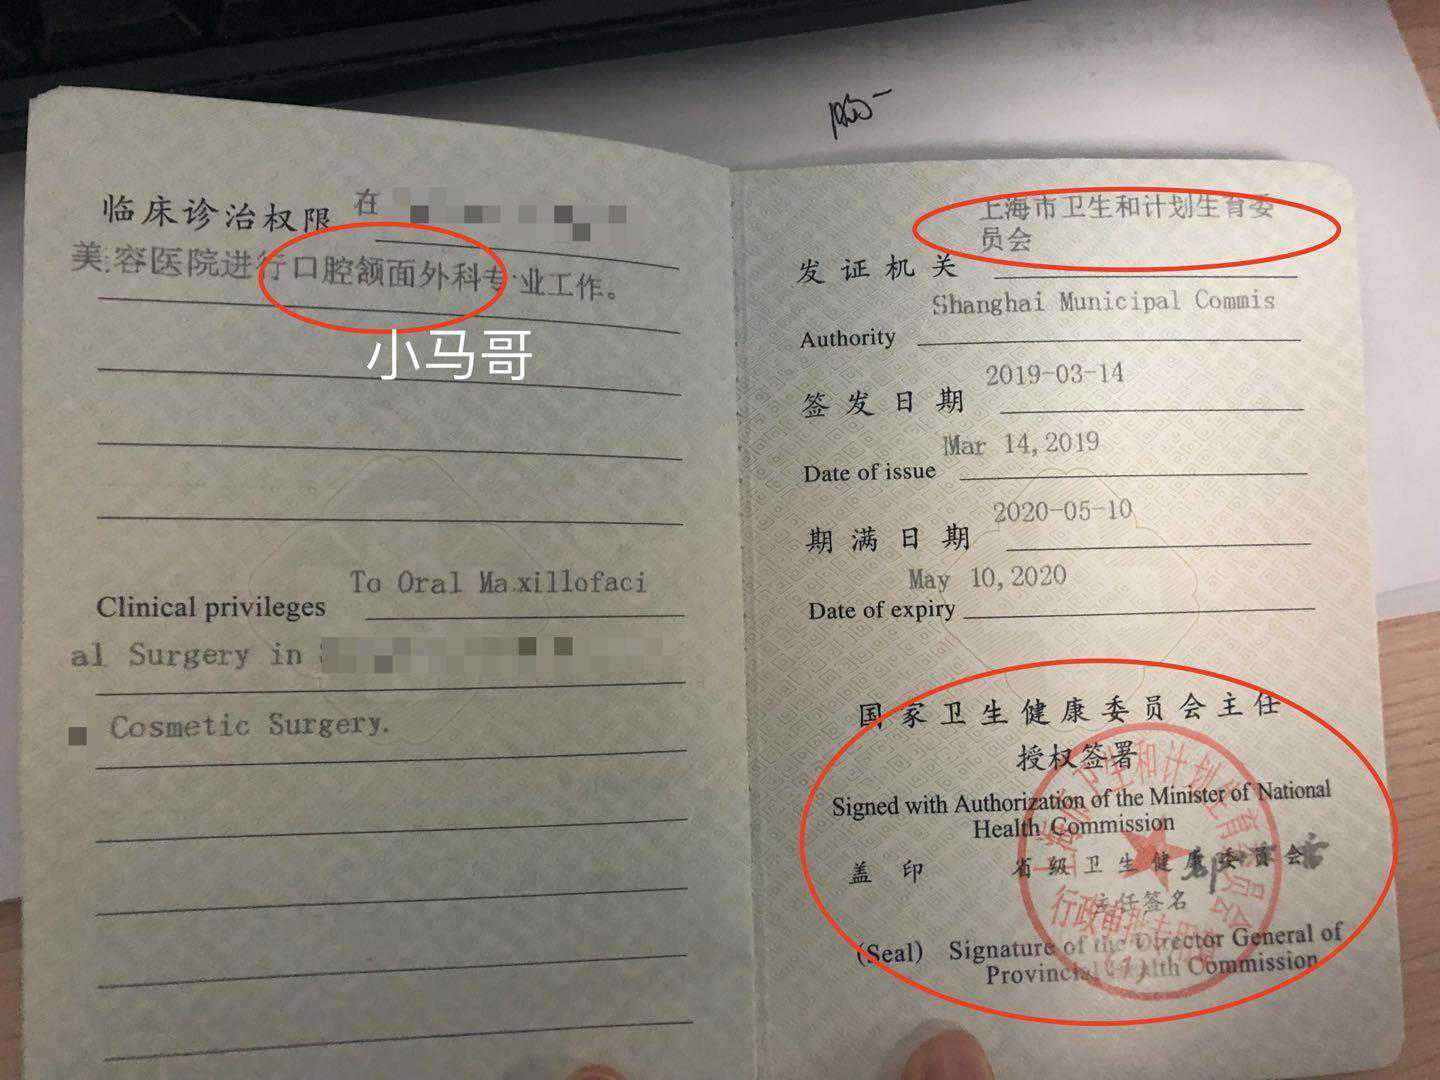 临床诊治权限 在
美容医院进行口腔颌面外科专业工作。
小马哥
Clinical privileges To Oral Maxillofaci
al Surgery in
Cosmetic Surgery.
上海市卫生和计划生育委
员会
发证机关
Shanghai Municipal Commis
Authority
2019-03-14
签发日期
Mar 14,2019
Date of issue
2020-05-10
期满日期
May 10,2020
Date of expiry
国家卫生健康委员会主任
授权签署
Signed with Authorization of the Minister of National
Health Commission
盖印 省级卫生健康委员会
主任签名
(Seal) Signature of the Director General of
Provincial Health Commission
上海市卫生和计划生育委员会
行政审批专用章